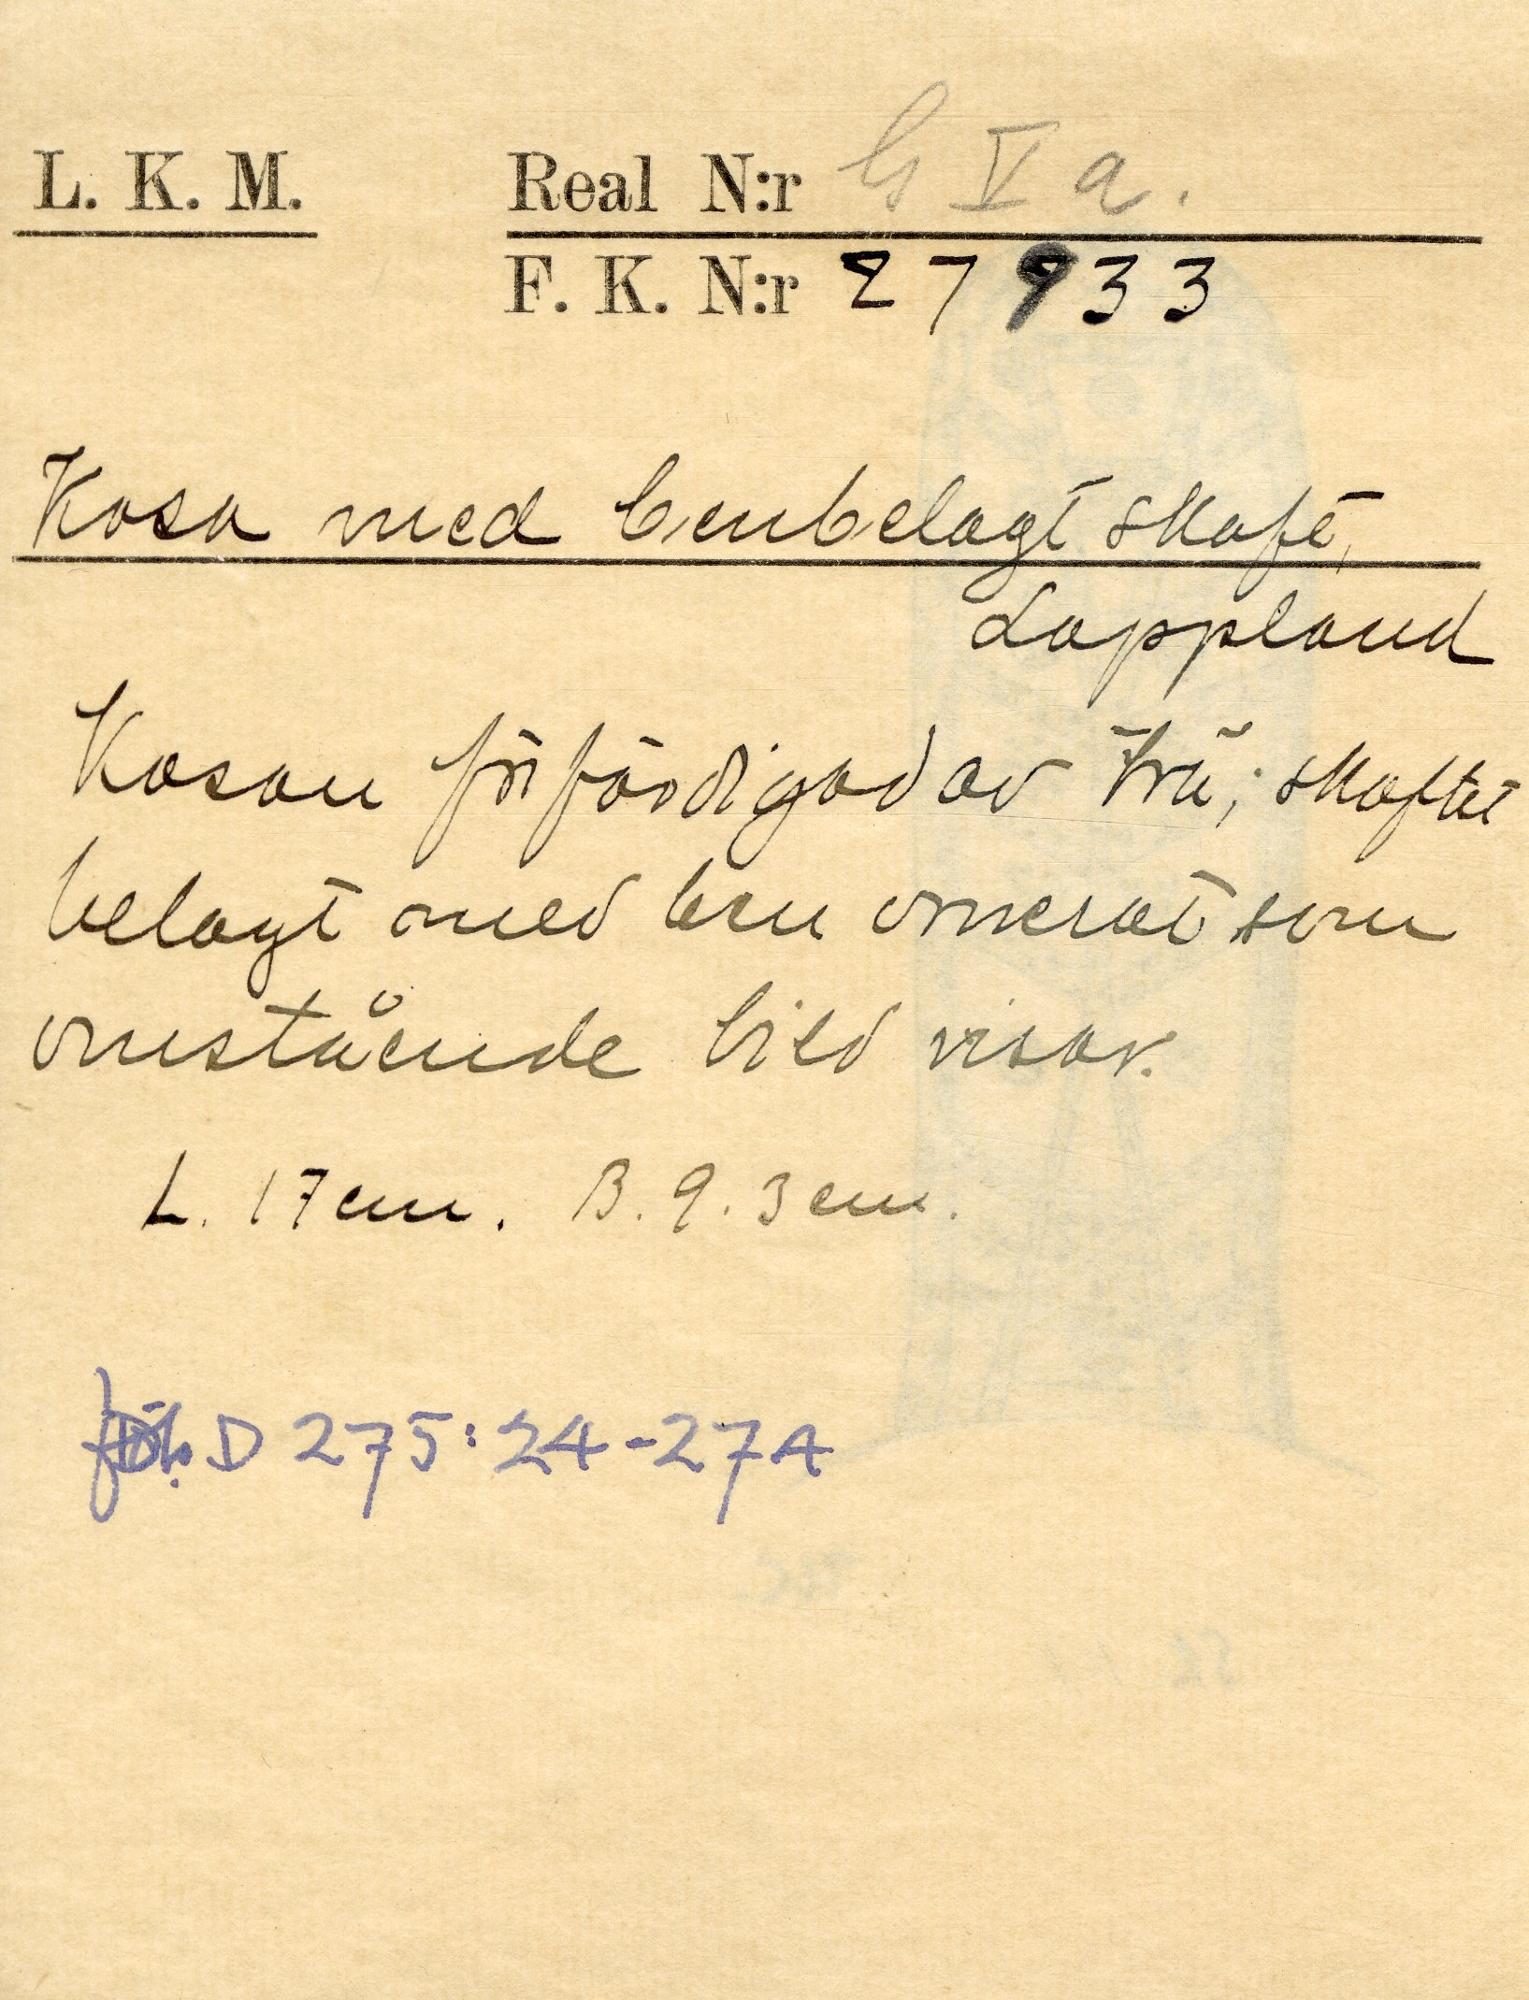 L. K. M. Real N:r G V a.
F. K. N:r 27933
Kosa med benbelagt skaft,
Lappland
Kosan förfärdigad av trä; skaftet
belagt med ben ornerat som
omstående bild visar.
L. 17 cm. B. 9.3 cm.
föb. D 275:24-27A